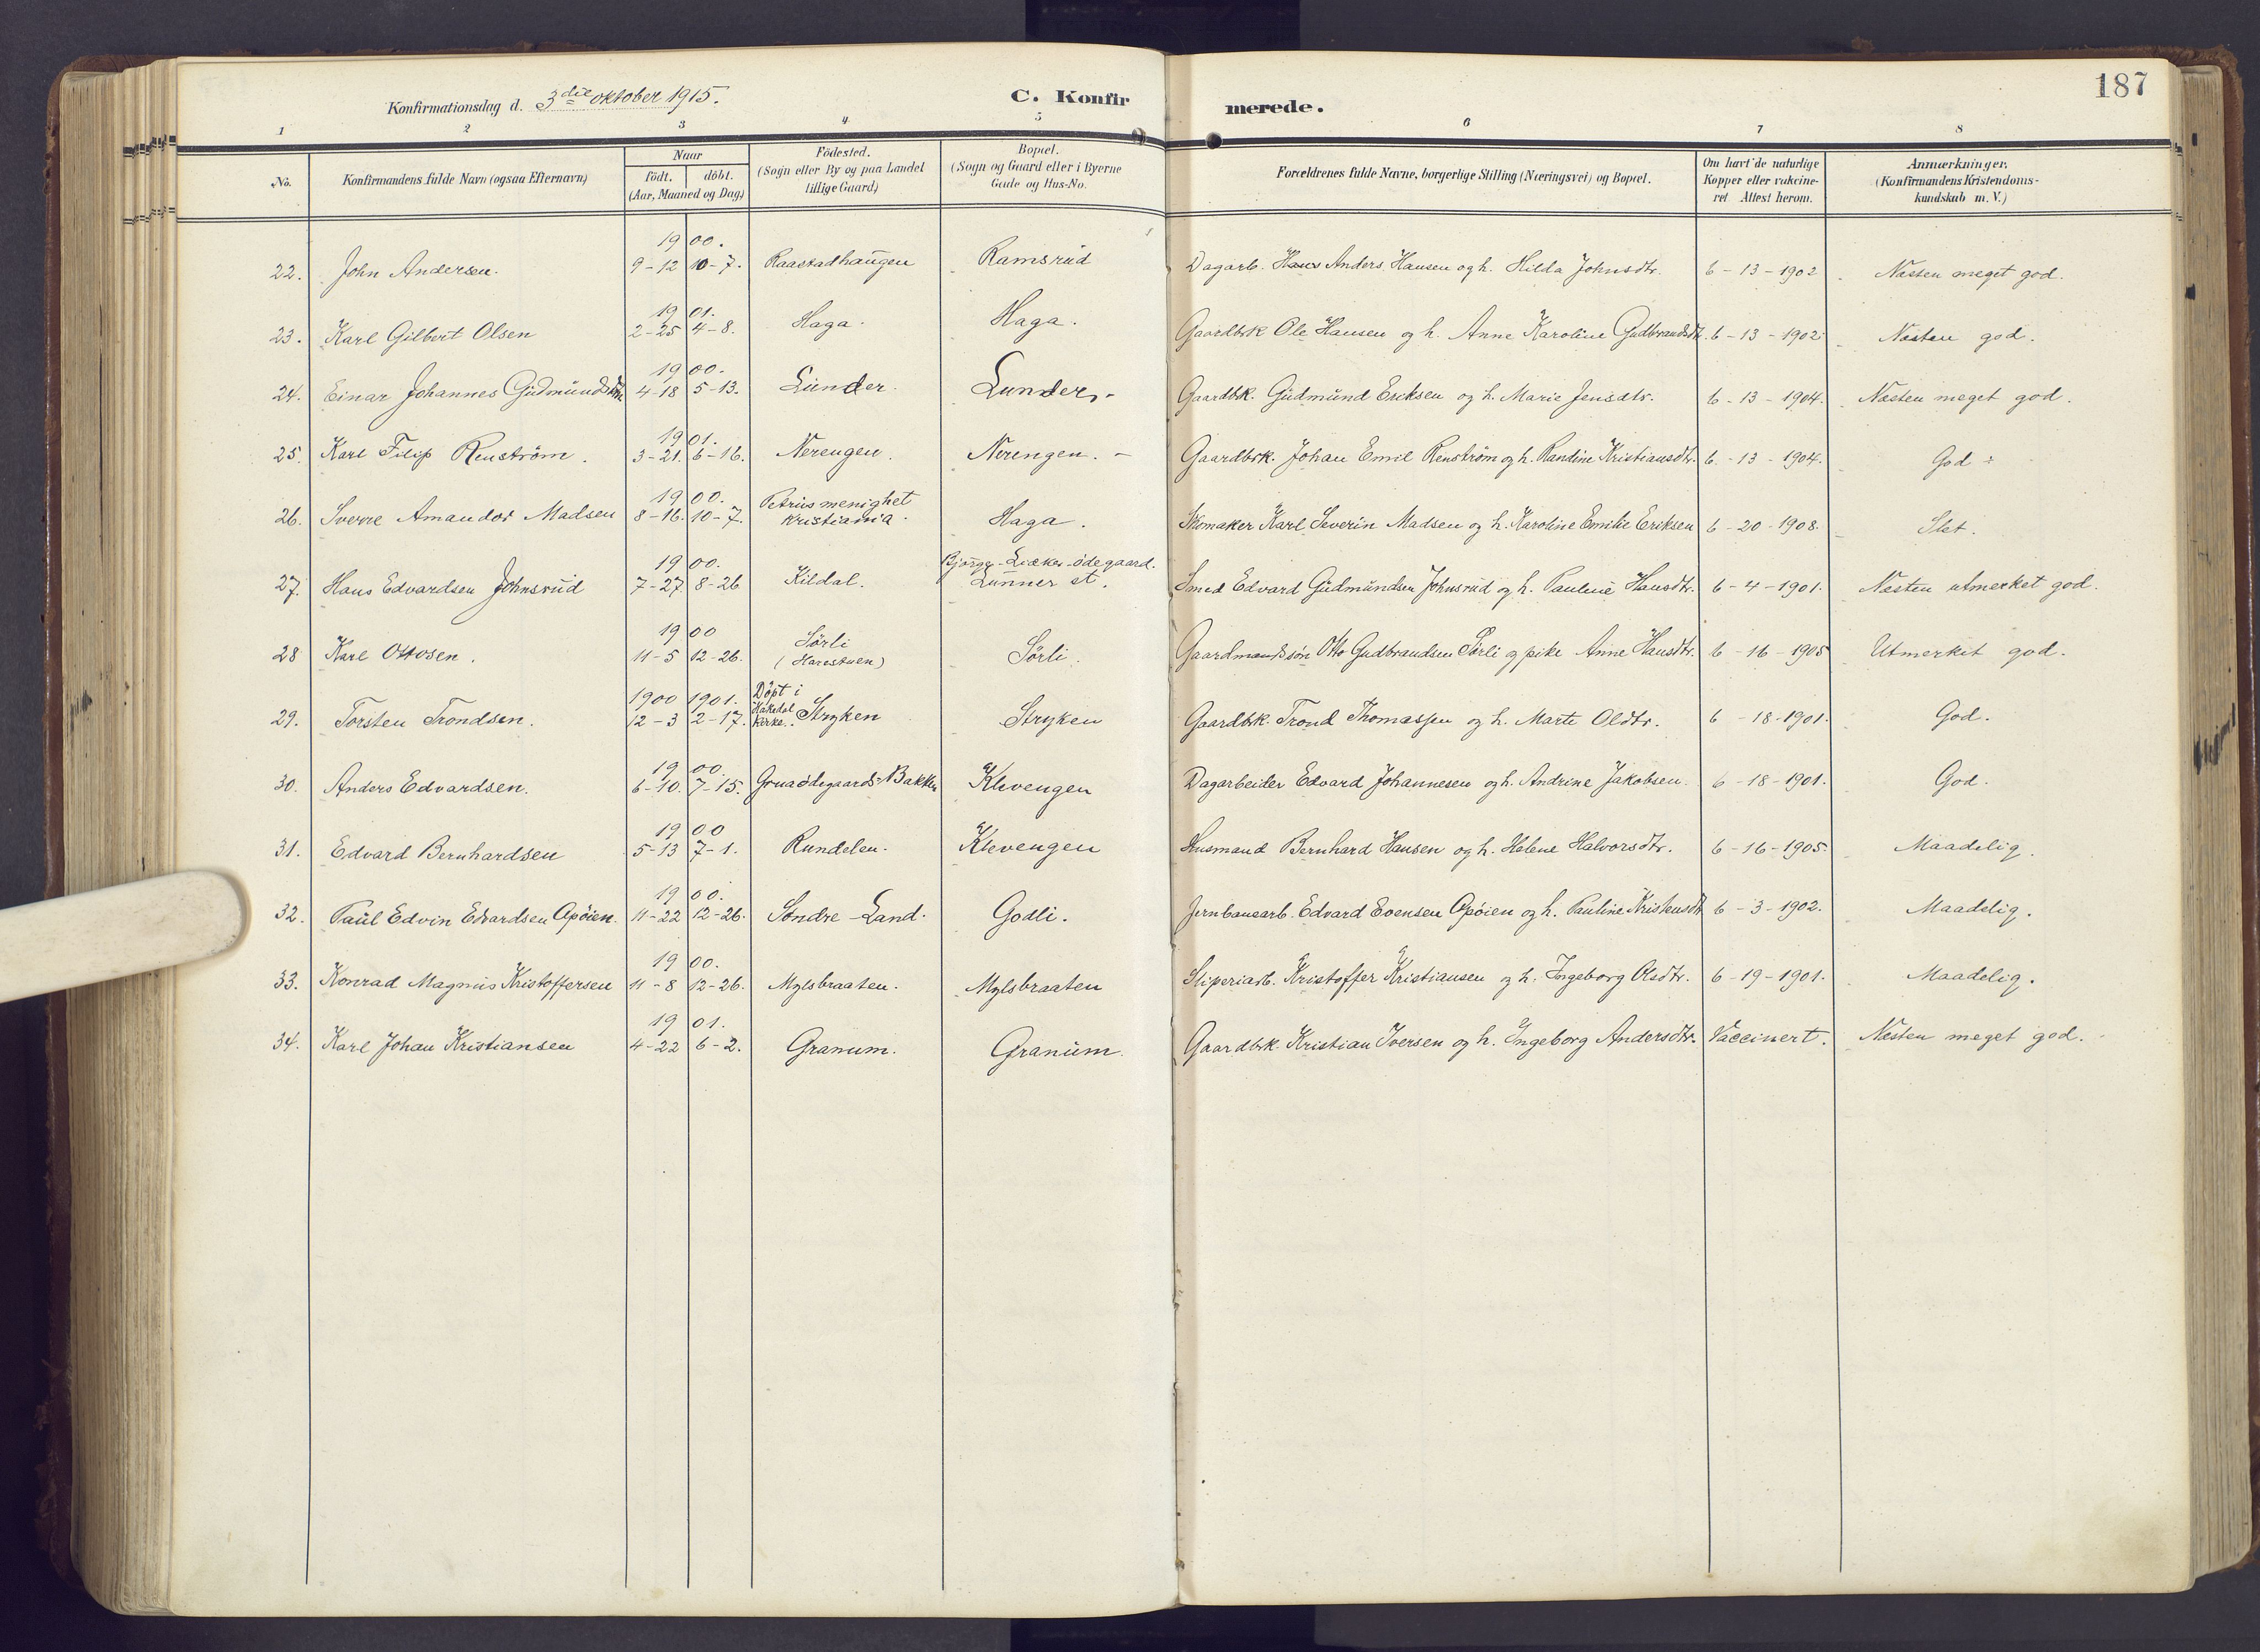 187
Konfirmationsdag d. 3die oktober 1915. C. Konfirmerede.
1 2 3 4 5 6 7 8
No. | Konfirmandens fulde Navn (ogsaa Efternavn) | Naar födt. döbt. (Aar, Maaned og Dag) | Födested. (Sogn eller By og paa Landet tillige Gaard) | Bopæl. (Sogn og Gaard eller i Byerne Gade og Hus-No. | Forældrenes fulde Navne, borgerlige Stilling (Næringsvei) og Bopæl. | Om havt de naturlige Kopper eller vakcineret Attest herom. | Anmærkninger. (Konfirmandens Kristendomskundskab m. V.)
22. John Andersen. 1900. 9-12 10-7. Raastadhaugen Ramsrud Dagarb. Hans Anders Hansen og h. Hilda Johnsdtr. 6-13-1902 Næsten meget god.
23. Karl Gilbert Olsen 1901. 2-25 4-8. Haga. Haga. Gaardbrk Ole Hansen og h. Anne Karoline Gudbrandsdtr. 6-13-1902 Næsten god.
24. Einar Johannes Gudmundsen 1900. 4-18 5-13. Lunder. Lunder. Gaardbk. Gudmund Ericksen og h. Marie Jensdtr. 6-13-1904. Næsten meget god.
25. Karl Filip Renström. 1901. 3-21. 6-16. Nerengen. Nerengen. Gaardbrk. Johan Emil Renström og h. Randine Kristiansdtr. 6-13-1904. God
26. Sverre Amandor Madsen 1900. 8-16. 10-7. Petrus menighet Kristiania. Haga. Skomaker Karl Severin Madsen og h. Karoline Emilie Eriksen 6-20-1908. Slet.
27. Hans Edvardsen Johnsrud 1900. 7-27 8-26 Kildal. Bjørge-Liækes-ödegaard. Lunner st. Smed Edvard Gudmundsen Johnsrud og h. Pauline Hansdtr. 6-4-1901. Næsten utmerket god.
28 Karl Ottosen. 1900 11-5 12-26. Sörli (Harestuen) Sörli. Gaardmandssøn Otto Gudbrandsen Sörli og pike Anne Hansdtr. 6-16-1905 Utmerket god.
29. Torsten Trondsen. 1900 12-3 1901. 2-17. Döpt i Hakedal Kirke. Stryken Stryken Gaardbk. Trond Thomassen og h. Marte Oldtr. 6-18-1901. God.
30. Anders Edvardsen. 1900. 6-10. 7-15. Gruaödegaards-Bakken Klevengen Dagarbeider Edvard Johannesen og h. Andrine Jakobsen. 6-18-1901. God.
31. Edvard Bernhardsen 1900 5-13 7-1. Rundelen. Klevengen Husmand Bernhard Hansen og h. Helene Halvorsdtr. 6-16-1905. Maadelig.
32. Paul Edvin Edvardsen Apöien. 1900. 11-22 12-26. Söndre-Land. Godli. Jernbanearb. Edvard Evensen Apöien og h. Pauline Kristensdtr 6-3-1902. Maadelig.
33. Konrad Magnus Kristoffersen 1900. 11-8 12-26. Mylsbraaten. Mylsbraaten Sliperiarb. Kristoffer Kristiansen og h. Ingeborg Olsdtr. 6-19-1901. Maadelig.
34. Karl Johan Kristiansen 1901. 4-22 6-2. Granum. Granum. Gaardbk. Kristian Iversen og h. Ingeborg Andersdtr. Vaccinert. Næsten meget god.